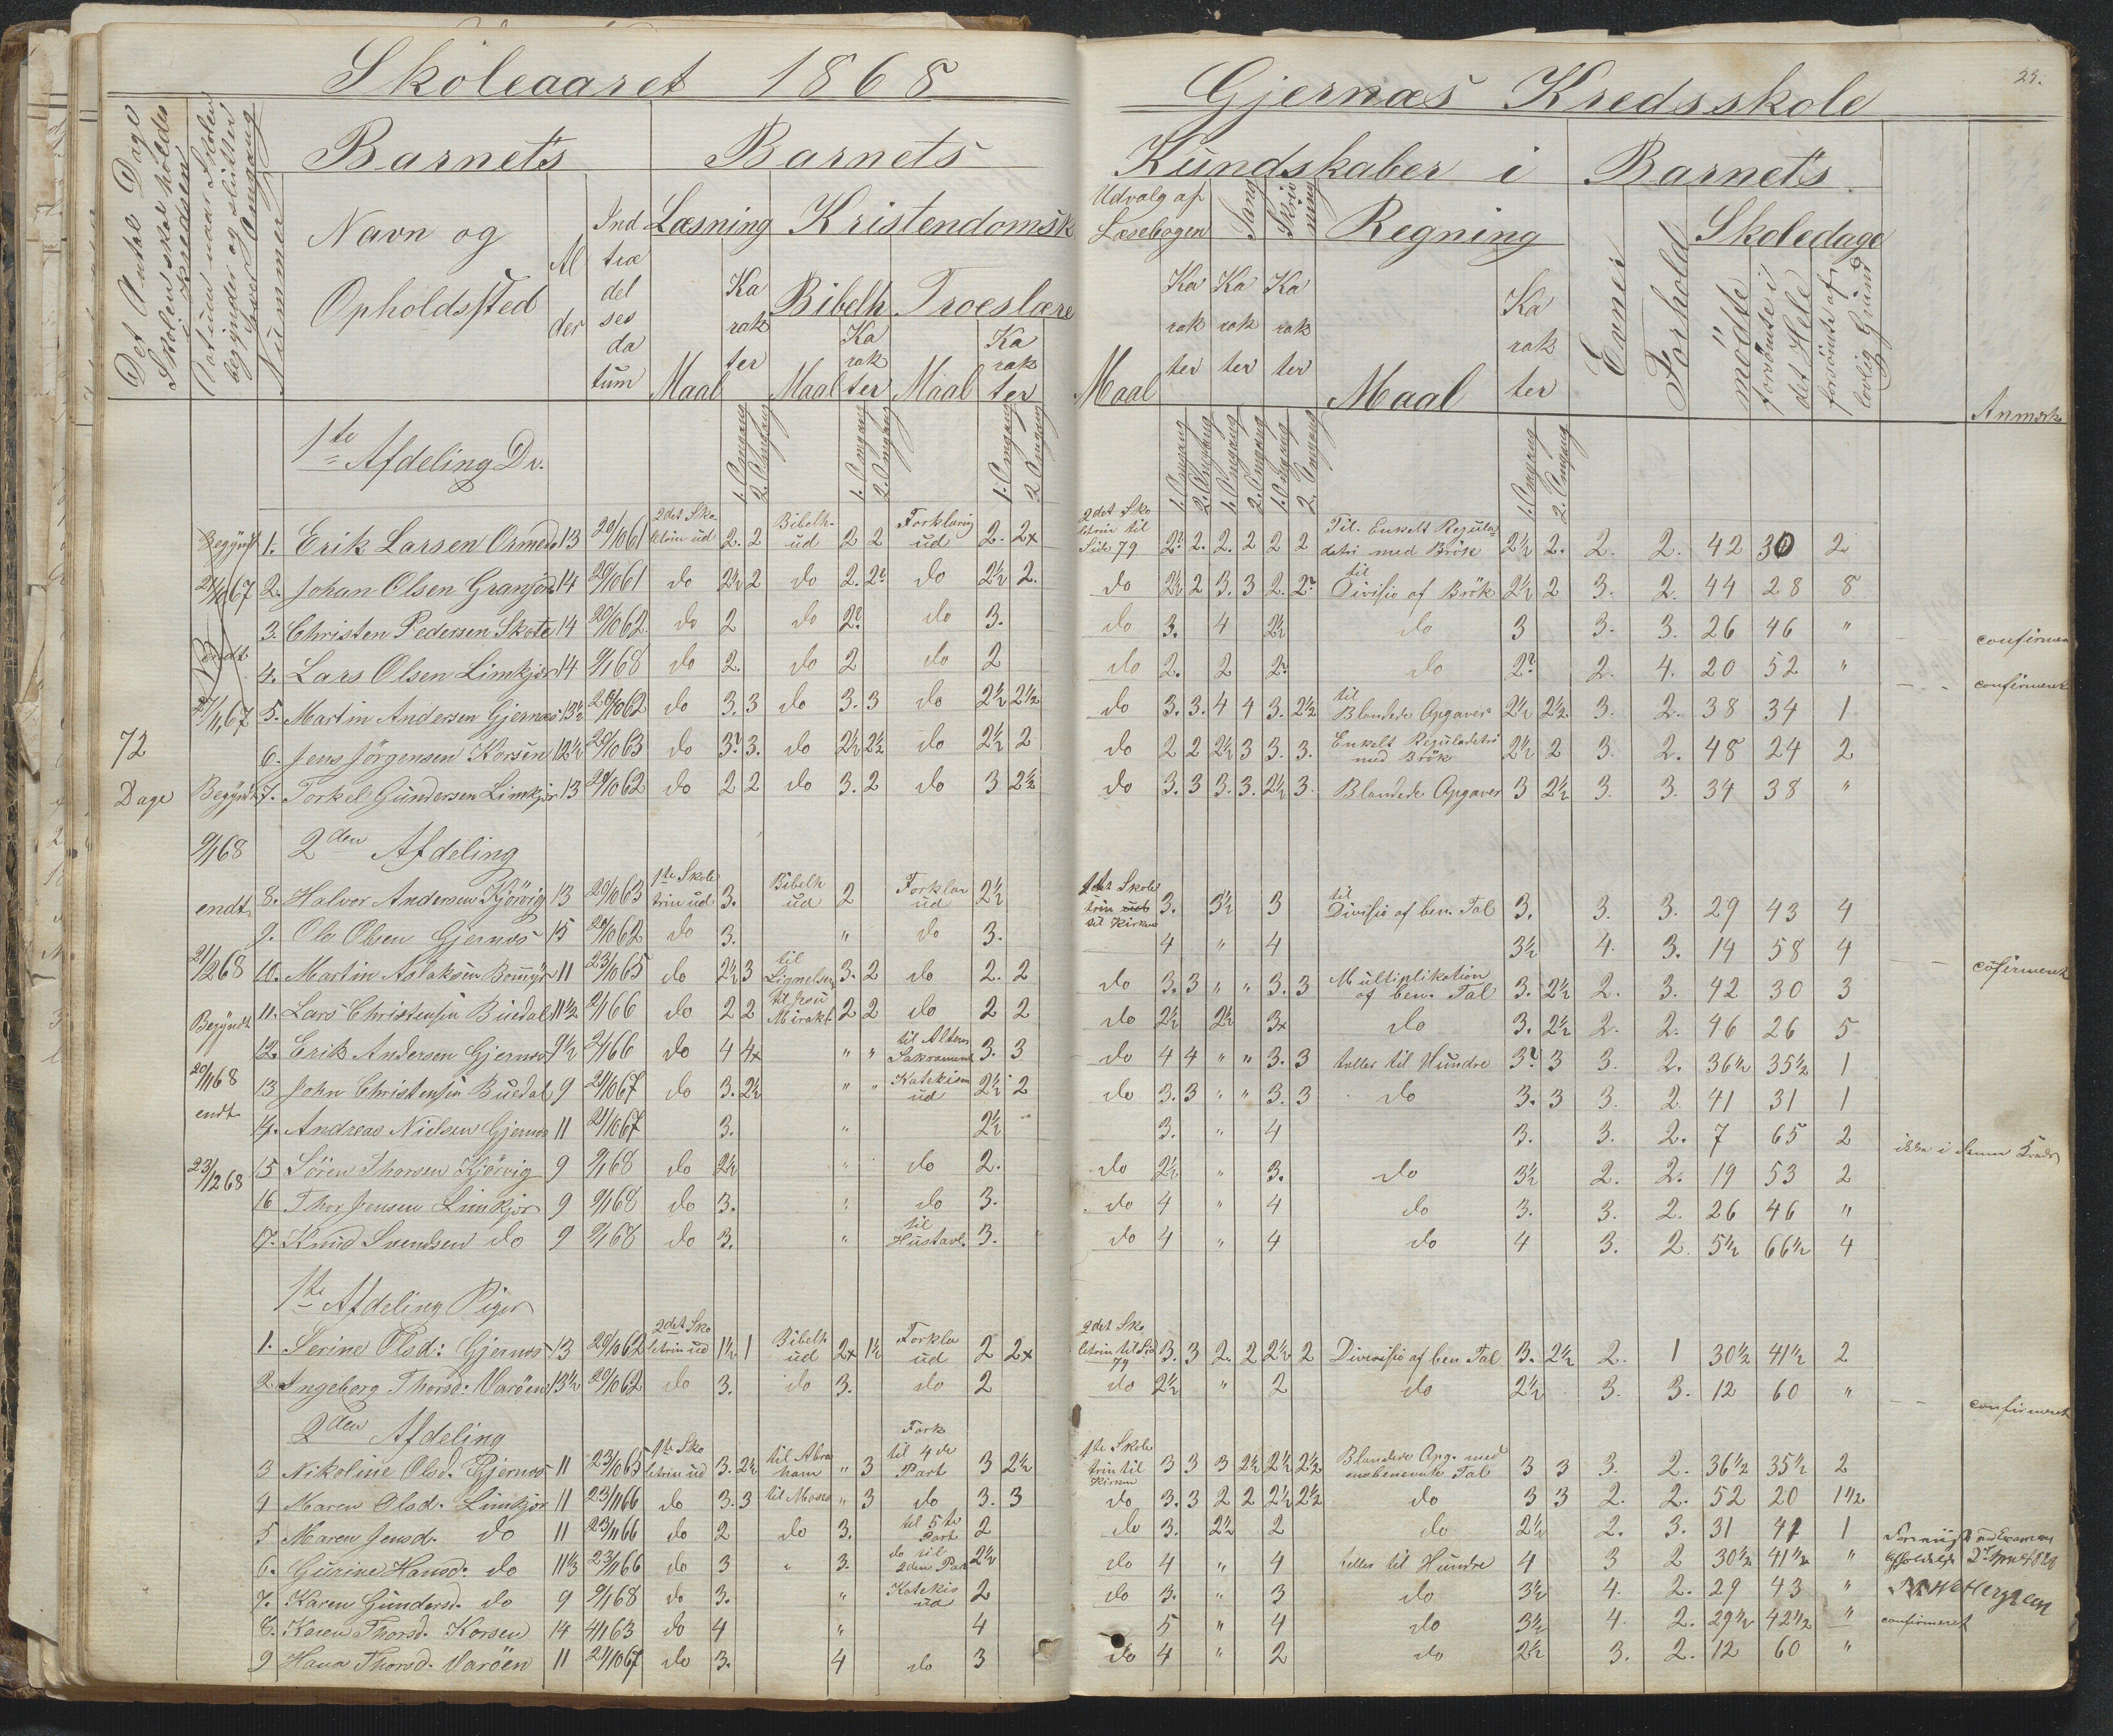 Skoleaaret 1868
Det Antal Dage Skolen skal holdes i Kredsen
Datum naar Skolen begynder og slutter hver Omgang
Nummer
Barnets
Navn og Opholdssted
Alder
Indtrædelsesdatum
Barnets
Læsning
Kristendomsk
Maal
Karakter
Bibelh.
Troeslære
Maal
Karakter
Maal
Karakter
1. Omgang
2. Omgang
1. Omgang
2. Omgang
1. Omgang
2 Omgang
Gjernæs Kredsskole
Kundskaber i
Barnets
Udvalg af Læsebogen
Sang
Skrivning
Regning
Evner
Forhold
Skoledage
Maal
Karakter
Karakter
Karakter
Maal
Karakter
mödte
forsömte i det Hele
forsömte af lovlig Grund
Anmærk
1. Omgang
2. Omgang
1. Omgang
2. Omgang
1. Omgang
2. Omgang
1. Omgang
2. Omgang
72
Dage
Begyndt
endt
Begyndt
9/1 68
endt
21/2 68
Begyndt
20/11 68
endt
23/12 68
1te Afdeling Dr.
1. Erik Larsen 13 20/10 61 2det Skoletrin ud 2. 2 Bibelh. ud 2 2 Forklaring ud 2. 2x 2det Skoletrin til Side 79 2? 2. 2. 2 2 2 Til Enkelt Reguladetri med Brök 2½ 2. 2. 2. 42 30 2
2. Johan Olsen 14 20/10 61 do 2½ 2 do 2. 2? do 2½ 2. do 2½ 2 3. 3 2. 2? til Divisio af Brök 2½ 2 3. 2. 44 28 8
3. Christen Pedersen 14 20/10 62 do 2 do 2? do 3. do 3. 4 2½ do 3 3. 3. 26 46 " confirmeret
4. Lars Olsen Limkjær 14 9/1 68 do 2. do 2 do 2 do 2. 2 2? do 2? 2. 4. 20 52 " confirmeret
5. Martin Andersen Gjernæs 13½ 20/10 62 do 3. 3 do 3. 3 do 2½ 2½ do 3. 3. 4 4 3. 2½ til Blandede Opgaver 2½ 2½ 3. 2. 38 34 1
6. Jens Jörgensen Korsen 12½ 20/10 63 do 3? 3. do 2½ 2½ do 2½ 2 do 2 2 2½ 3 3. 3. Enkelt Reguladetri med Brök 2½ 2 3. 2. 48 24 2
7. Torkel Gundersen Limkjær 13 20/10 62 do 2 2 do 3. 2 do 3 2½ do 3. 3 3. 3. 2½ 3. Blandede Opgaver 3 2½ 3. 3. 34 38 "
2den Afdeling
8. Halvor Andersen Kjörvig 13 20/10 63 1te Skoletrin ud 3. Bibelh ud 2 Forklar ud 2½ Skoletrin til Kirken 3. 3½ 3 til Divisio af ben. Tal 3. 3. 3. 29 43 4
9. Ole Olsen Gjernæs 15 20/10 62 do 3. " do 3. 4 " 4 3½ 4. 3. 14 58 4 cofirmeret
10. Martin Aslaksen 11 23/10 65 do 2½ 3 til Lignelsen 3. 2 do 2. 2 do 3. 3 " " 3. 3 Multiplikation af ben. Tal 3. 2½ 2. 3. 42 30 3
11. Lars Christensen Buedal 11½ 2/1 66 do 2 2 til Jesu Mirakl. 2 2 do 2 2 do 2½ 2½ 3x do 3. 2½ 2. 2. 46 26 5
12. Erik Andersen Gjernæs 9½ 2/1 66 do 4 4x " " til Alterens Sakrament 3. 3 do 4 4 " " 3. 3 tæller til Hundre 3? 3 3. 2. 36½ 35½ 1
13 John Christensen Buedal 9 21/10 67 do 3. 2½ " " Katekism ud 2½ 2 do 3. 3 " " 3. 3 do 3. 3 3. 2. 41 31 1
14. Andreas Nielsen Gjernæs 11 21/10 67 3. " 2½ 3. " 4 3. 3. 2. 7 65 2 ikke i denne Kreds
15 Sören Thorsen Kjörvig 9 9/1 68 do 2½ " do 2. do 2½ " 3. do 3½ 2. 2. 19 53 2
16 Thor Jensen Limkjær 9 9/1 68 do 3. " do 3. do 4 " 4 do 3. 3. 2. 26 46 "
17. Knud Svendsen do 9 9/1 68 do 3. " til Hustavl. 3. do 4 " 4 do 4 3. 2. 5½ 66½ 4
1te Afdeling Piger
1. Serine Olsd: Gjernæs 13 20/10 62 2det Skoletrin ud 1½ 1 Bibelh ud 2x 1½ Forkla ud 2 2x 2det Skoletrin til Sid 79 3. 3 2. 2 2½ 2 Divisio af ben Tal 3. 2½ 2. 1 30½ 41½ 2
2 Ingeborg Thorsd: Varöen 13½ 20/10 62 do 3. do 3. do 2 do 2½ " 2 do 2½ 3. 3. 12 60 " confirmeret
2den Afdeling
3 Nikoline Olsd. Gjernæs 11 23/10 65 1te Skoletrin ud 3. 2½ til Abraham " 3 Fork til 4de Part 3 2½ 1te Skoletrin til Kirken 3 3 3 2½ 2½ 2½ Blandede Opg. med ensbenevnte Tal 3 3 3. 2. 36½ 35½ 2
4 Maren Olsd. Limkjær 11 23/11 66 do 3. 3 til Moses " 3 do 3. 3 do 3. 3 2 2 2½ 2½ do 3 3 2. 2. 52 20 1½
5 Maren Jensd. do 11 23/11 66 do 2 do 3. til 5te Part 2 do 3. 2½ 2 do 2½ 2. 3. 31 41 1
6. Gurine Hansd. do 11½ 23/11 66 do 3 " 3. do til 2den Part 2½ do 4 " 4 tæller til Hundre 4 3 2 30½ 41½ "
7. Karen Gundersd. do 9 9/1 68 do 3. " Katekis ud 2 do 3. " 3 do 3½ 4. 2. 29 43 "
8. Karen Thorsd. Korsen 14 4/1 63 do 4 " 4 5 " 4 do 3½ 4. 2. 29½ 42½ " confirmeret
9 Hana Thorsd. Varöen 11 21/10 67 do 3. 4 do 3 do 4 " 2 do 2½ 3. 2. 12 60 "